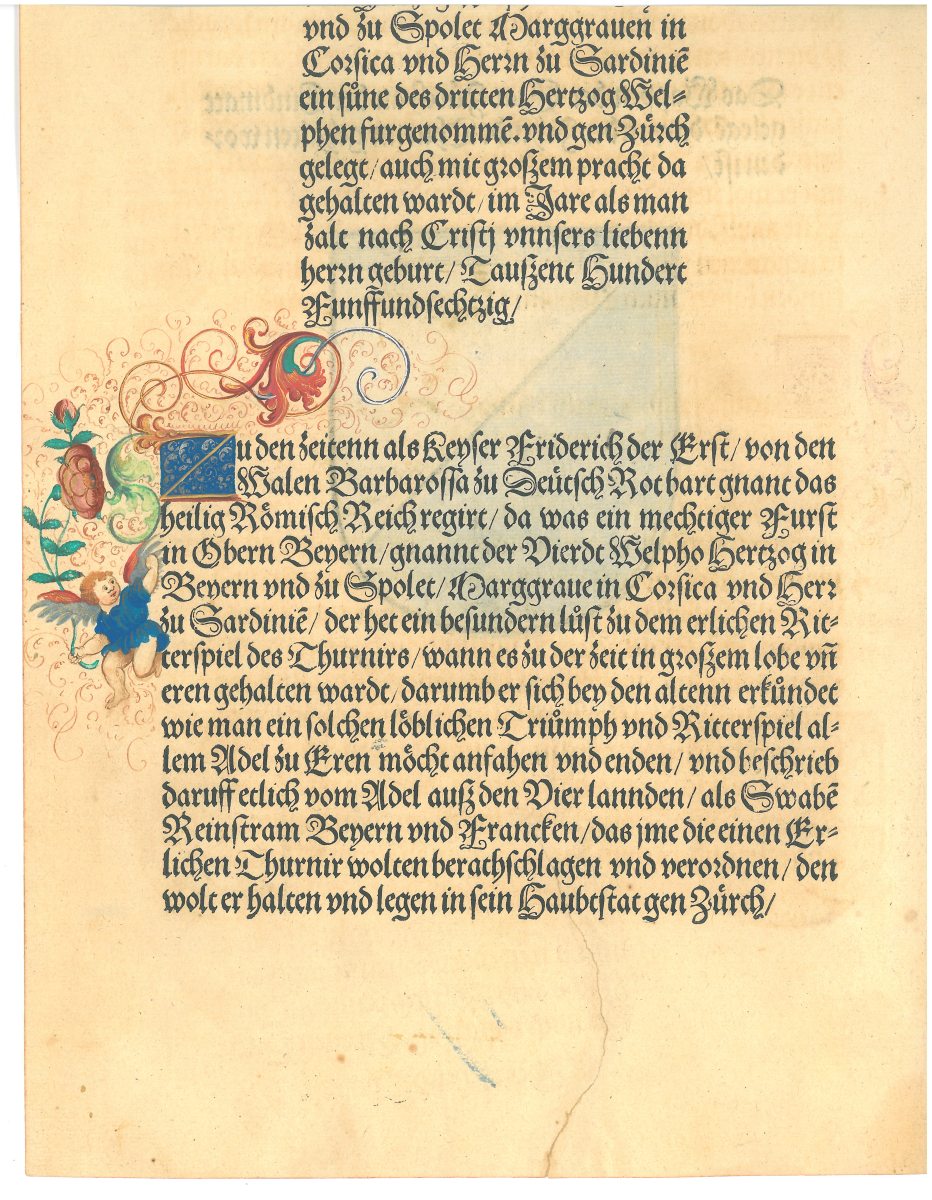 vnd zu Spolet Marggrauen in
Corsica vnd Herrn zu Sardiniē
ein sůne des dritten Hertzog Wel-
phen furgenommē. vnd gen Zürch
gelegt/ auch mit großem pracht da
gehalten wardt/ im Jare als man
zalt nach Cristj vnnsers liebenn
herrn geburt/ Taußent Hundert
Funffundsechtzig/
Zu den zeitenn als Keyser Friderich der Erst/ von den
Walen Barbarossa zu Deütsch Rot bart gnant das
heilig Römisch Reich regirt/ da was ein mechtiger Furst
in Obern Beyern/ gnannt der Vierdt Welpho Hertzog in
Beyern vnd zu Spolet/ Marggraue in Corsica vnd Herr
zu Sardiniē/ der het ein besundern lůst zu dem erlichen Rit-
terspiel des Thurnirs/ wann es zu der zeit in großem lobe vn̄
eren gehalten wardt/ darumb er sich bey den altenn erkůndet
wie man ein solchen löblichen Triůmph vnd Ritterspiel al-
lem Adel zu Eren möcht anfahen vnd enden/ vnd beschrieb
daruff etlich vom Adel auß den Vier lannden/ als Swabē
Reinstram Beyern vnd Francken/ das jme die einen Er-
lichen Thurnir wolten berathschlagen vnd verordnen/ den
wolt er halten vnd legen in sein Haubtstat gen Zürch/